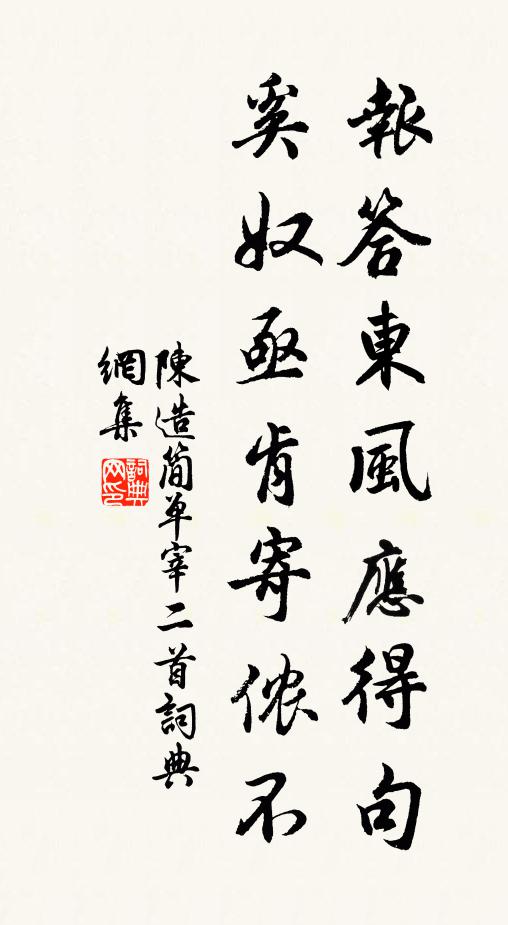 報答東風應得句
奚奴亟肯寄侬不
陳造简单宰二首詞典
網集
詞典
网印